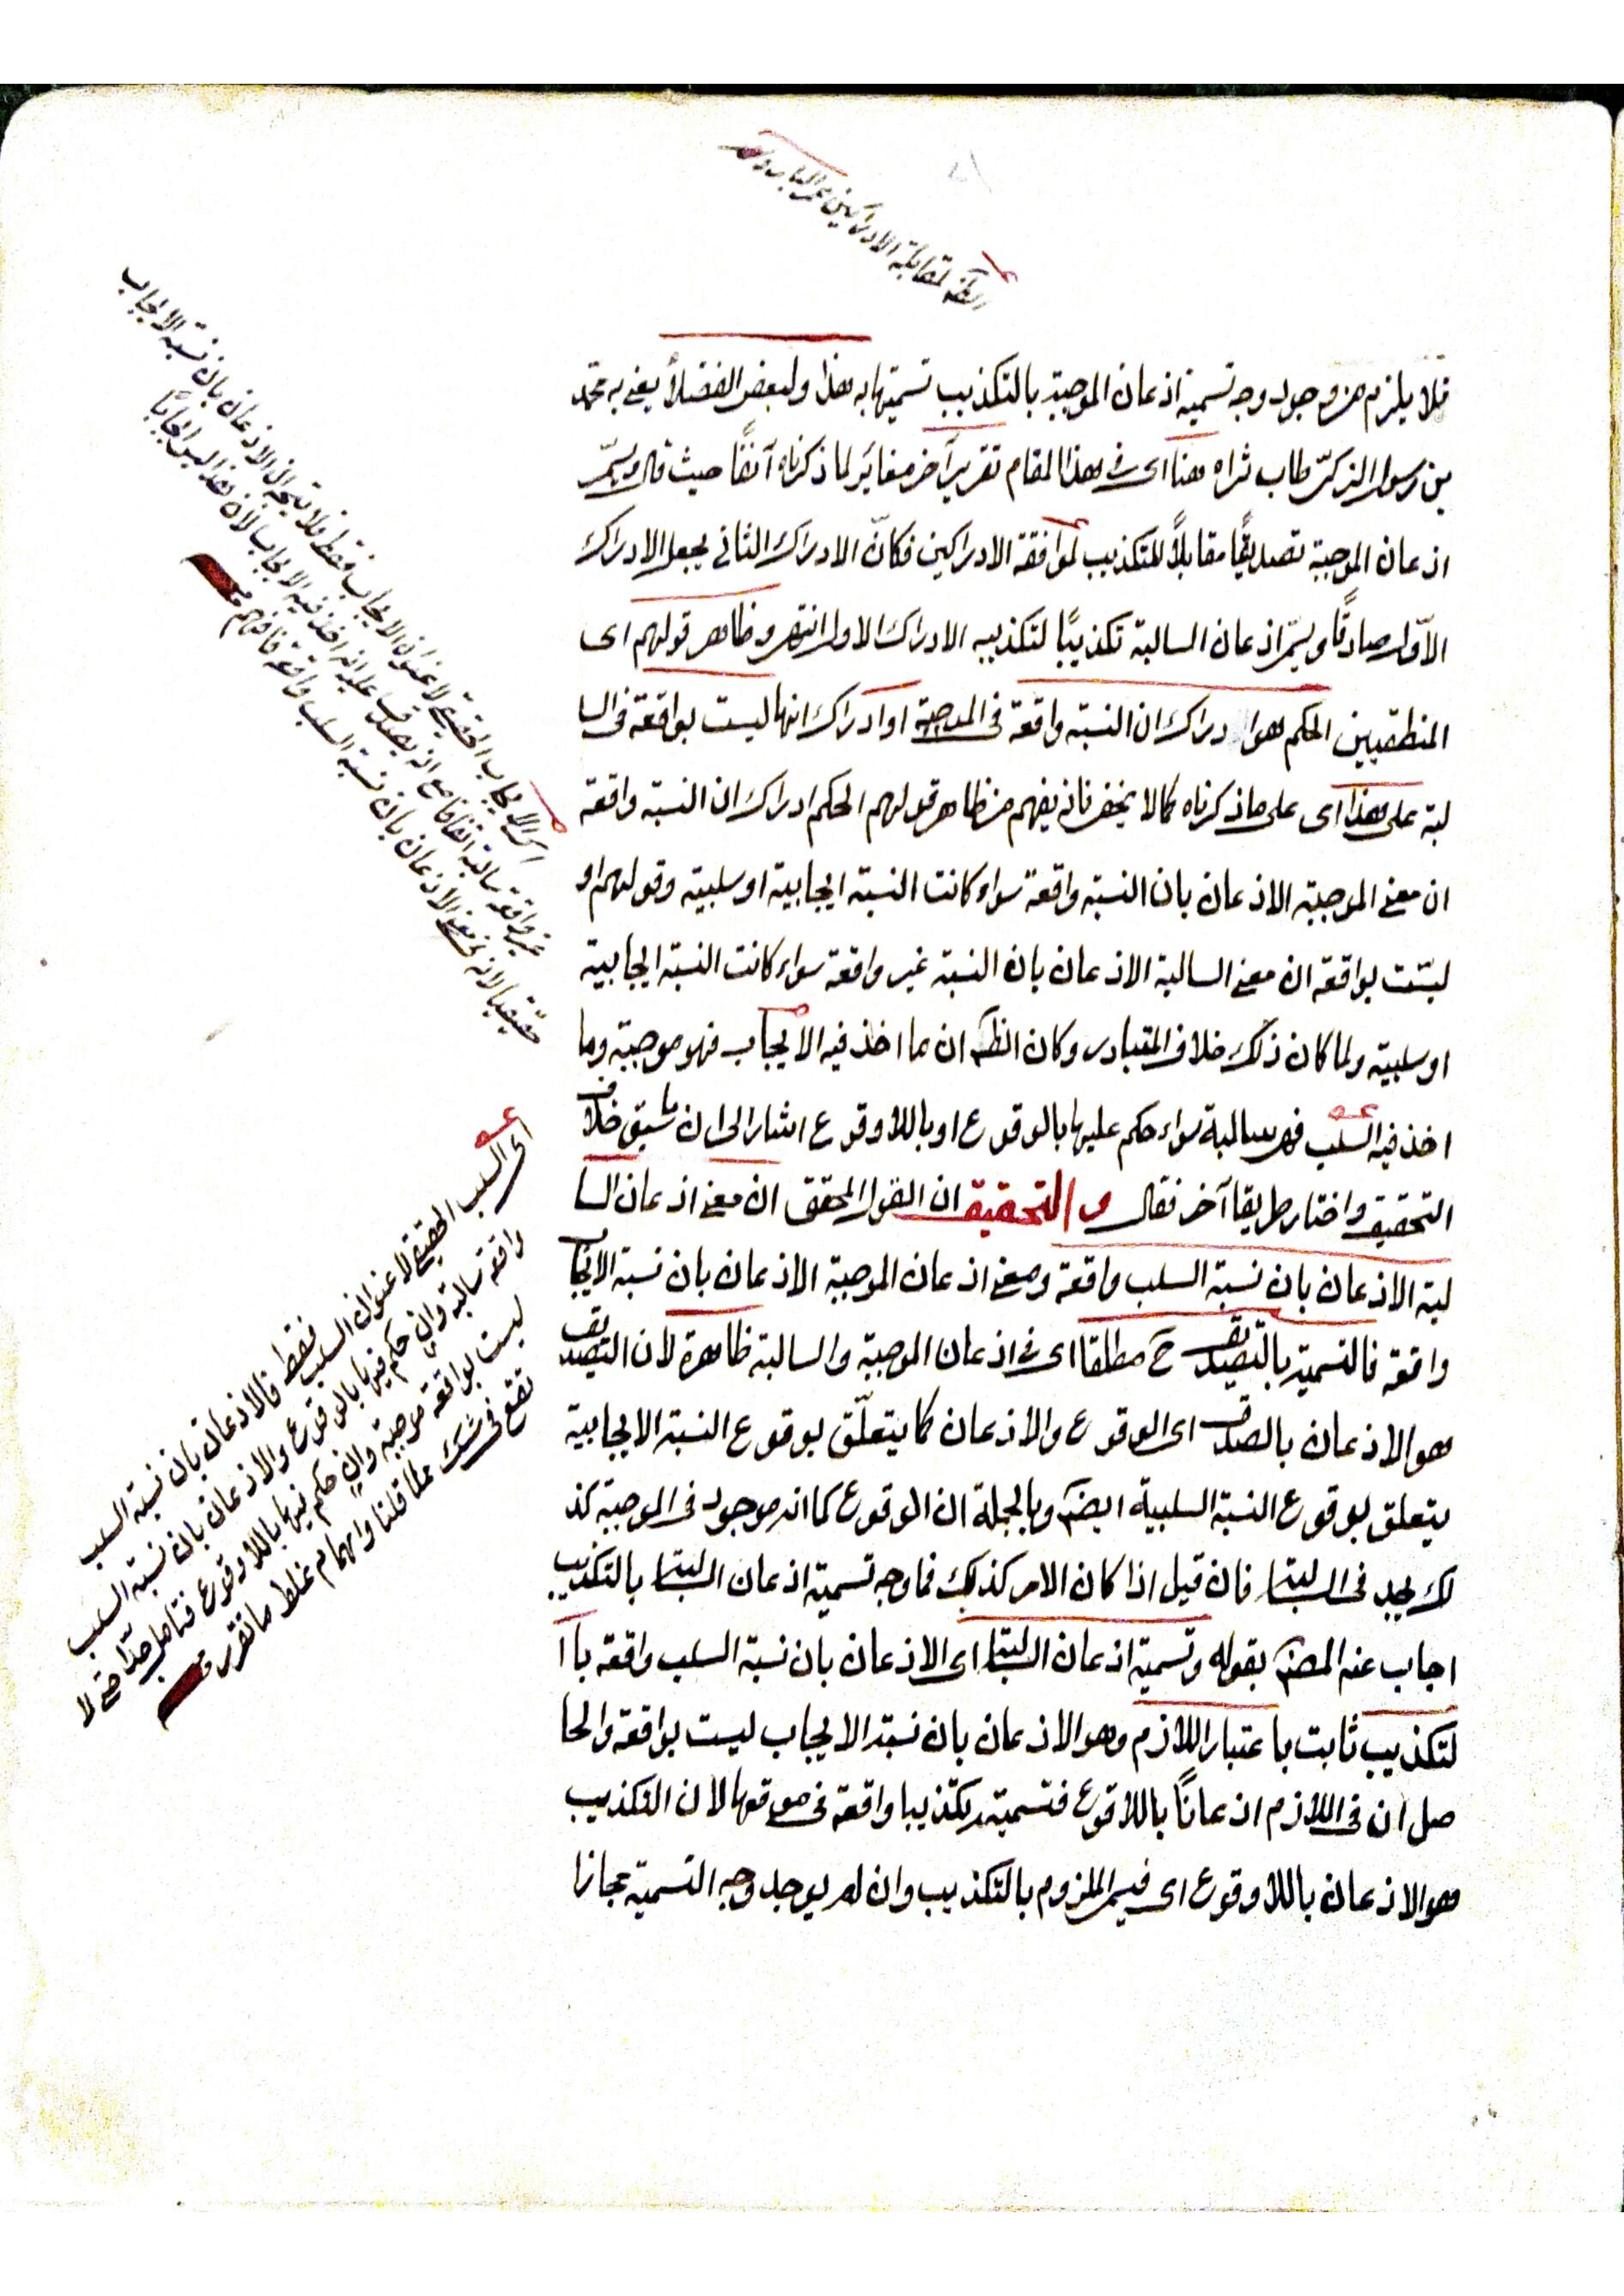 فلا يلزم من وجود وجه تسمية اذعان الموجبة بالتكذيب تسميتها به هذا ولبعض الفضلأ يعنى به محمد
بن رسول الزكىّ طاب ثراه هنا اى فى هذا المقام تقريرٌ آخر مغائر لما ذكرناه آنفًا حيث قال ويسمّى
اذعان الموجبة تصديقًا مقابلًا للتكذيب لموافقة الادراكين فكانّ الادراك الثانى يجعل الادراك
الاوّل صادقًا ويسمّى اذعان السالبة تكذيبًا لتكذيبه الادراك الاول انتهى وظاهر قولهم اى
المنطقيين الحكم هو ادراك ان النسبة واقعة فى الموجبة او ادراك انها ليست بواقعة فى السا
لبة على هذا اى على ما ذكرناه كما لا يخفى فانه يفهم من ظاهر قولهم الحكم ادراك ان النسبة واقعة
ان معنى الموجبة الاذعان بان النسبة واقعة سواء كانت النسبة ايجابية او سلبية وقولهم او
ليست بواقعة ان معنى السالبة الاذعان بان النسبة غير واقعة سواء كانت النسبة ايجابية
او سلبية ولما كان ذلك خلاف المتبادر وكان الظ ان ما اخذ فيه الايجاب فهو موجبة وما
اخذ فيه السلب فهى سالبة سواء حكم عليها بالوقوع او باللاوقوع اشار الى ان ما سبق خلاف
التحقيق واختار طريقا آخر فقال و التحقيق ان القول المحقق ان معنى اذعان السا
لبة الاذعان بان نسبة السلب واقعة ومعنى اذعان الموجبة الاذعان بان نسبة الايجاب
واقعة فالتسمية بالتصديق ح مطلقا اى فى اذعان الموجبة والسالبة ظاهرة لان التصديق
هو الاذعان بالصدق اى الوقوع والاذعان كما يتعلّق بوقوع النسبة الايجابية
يتعلق بوقوع النسبة السلبية ايضً وبالجملة ان الوقوع كما انه موجود فى الموجبة كذ
لك يوجد فى السالبة فان قيل اذا كان الامر كذلك فما وجه تسمية اذعان السالبة بالتكذيب
اجاب عنه المصنف بقوله وتسمية اذعان السالبة اى الاذعان بان نسبة السلب واقعة با ا
لتكذيب ثابت باعتبار اللازم وهو الاذعان بان نسبة الايجاب ليست بواقعة والحا
صل ان فى اللازم اذعانًا باللاوقوع فتسميته تكذيبا واقعة فى موقعها لان التكذيب
هو الاذعان باللاوقوع اى فيسمى الملزوم بالتكذيب وان لم يوجد وجه التسمية مجازا
اى الايجاب الحقيقى لا عنوان الايجاب فقط فلا يتجه ان الاذعان بان نسبة الايجاب
غير واقعة سالبة اتفاقا مع انه يصدق عليه انه اخذ فيه الايجاب لان هذا ليس ايجابًا
حقيقيا لانه فى معنى الاذعان بان نسبة السلب واقعة فافهم
اى السلب الحقيقى لا عنوان السلب فقط فالاذعان بان نسبة السلب
واقعة سالبة وان حكم فيها بالوقوع والاذعان بان نسبة السلب
ليست بواقعة موجبة وان حكم فيها باللاوقوع فتامل جدّا حتى لا
تقع فى شك مما قلنا وايهام غلط ما تقرر